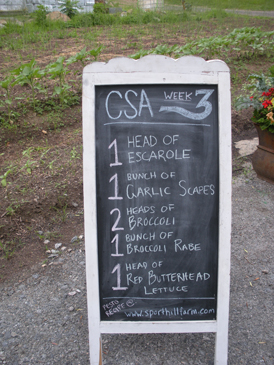 CSA WEEK 3
1 HEAD OF
ESCAROLE
1 BUNCH OF
GARLIC SCAPES
2 HEADS OF
BROCCOLI
1 BUNCH OF
BROCCOLI RABE
1 HEAD OF
RED BUTTERHEAD
LETTUCE
PESTO
RECIPE
www.sporthillfarm.com